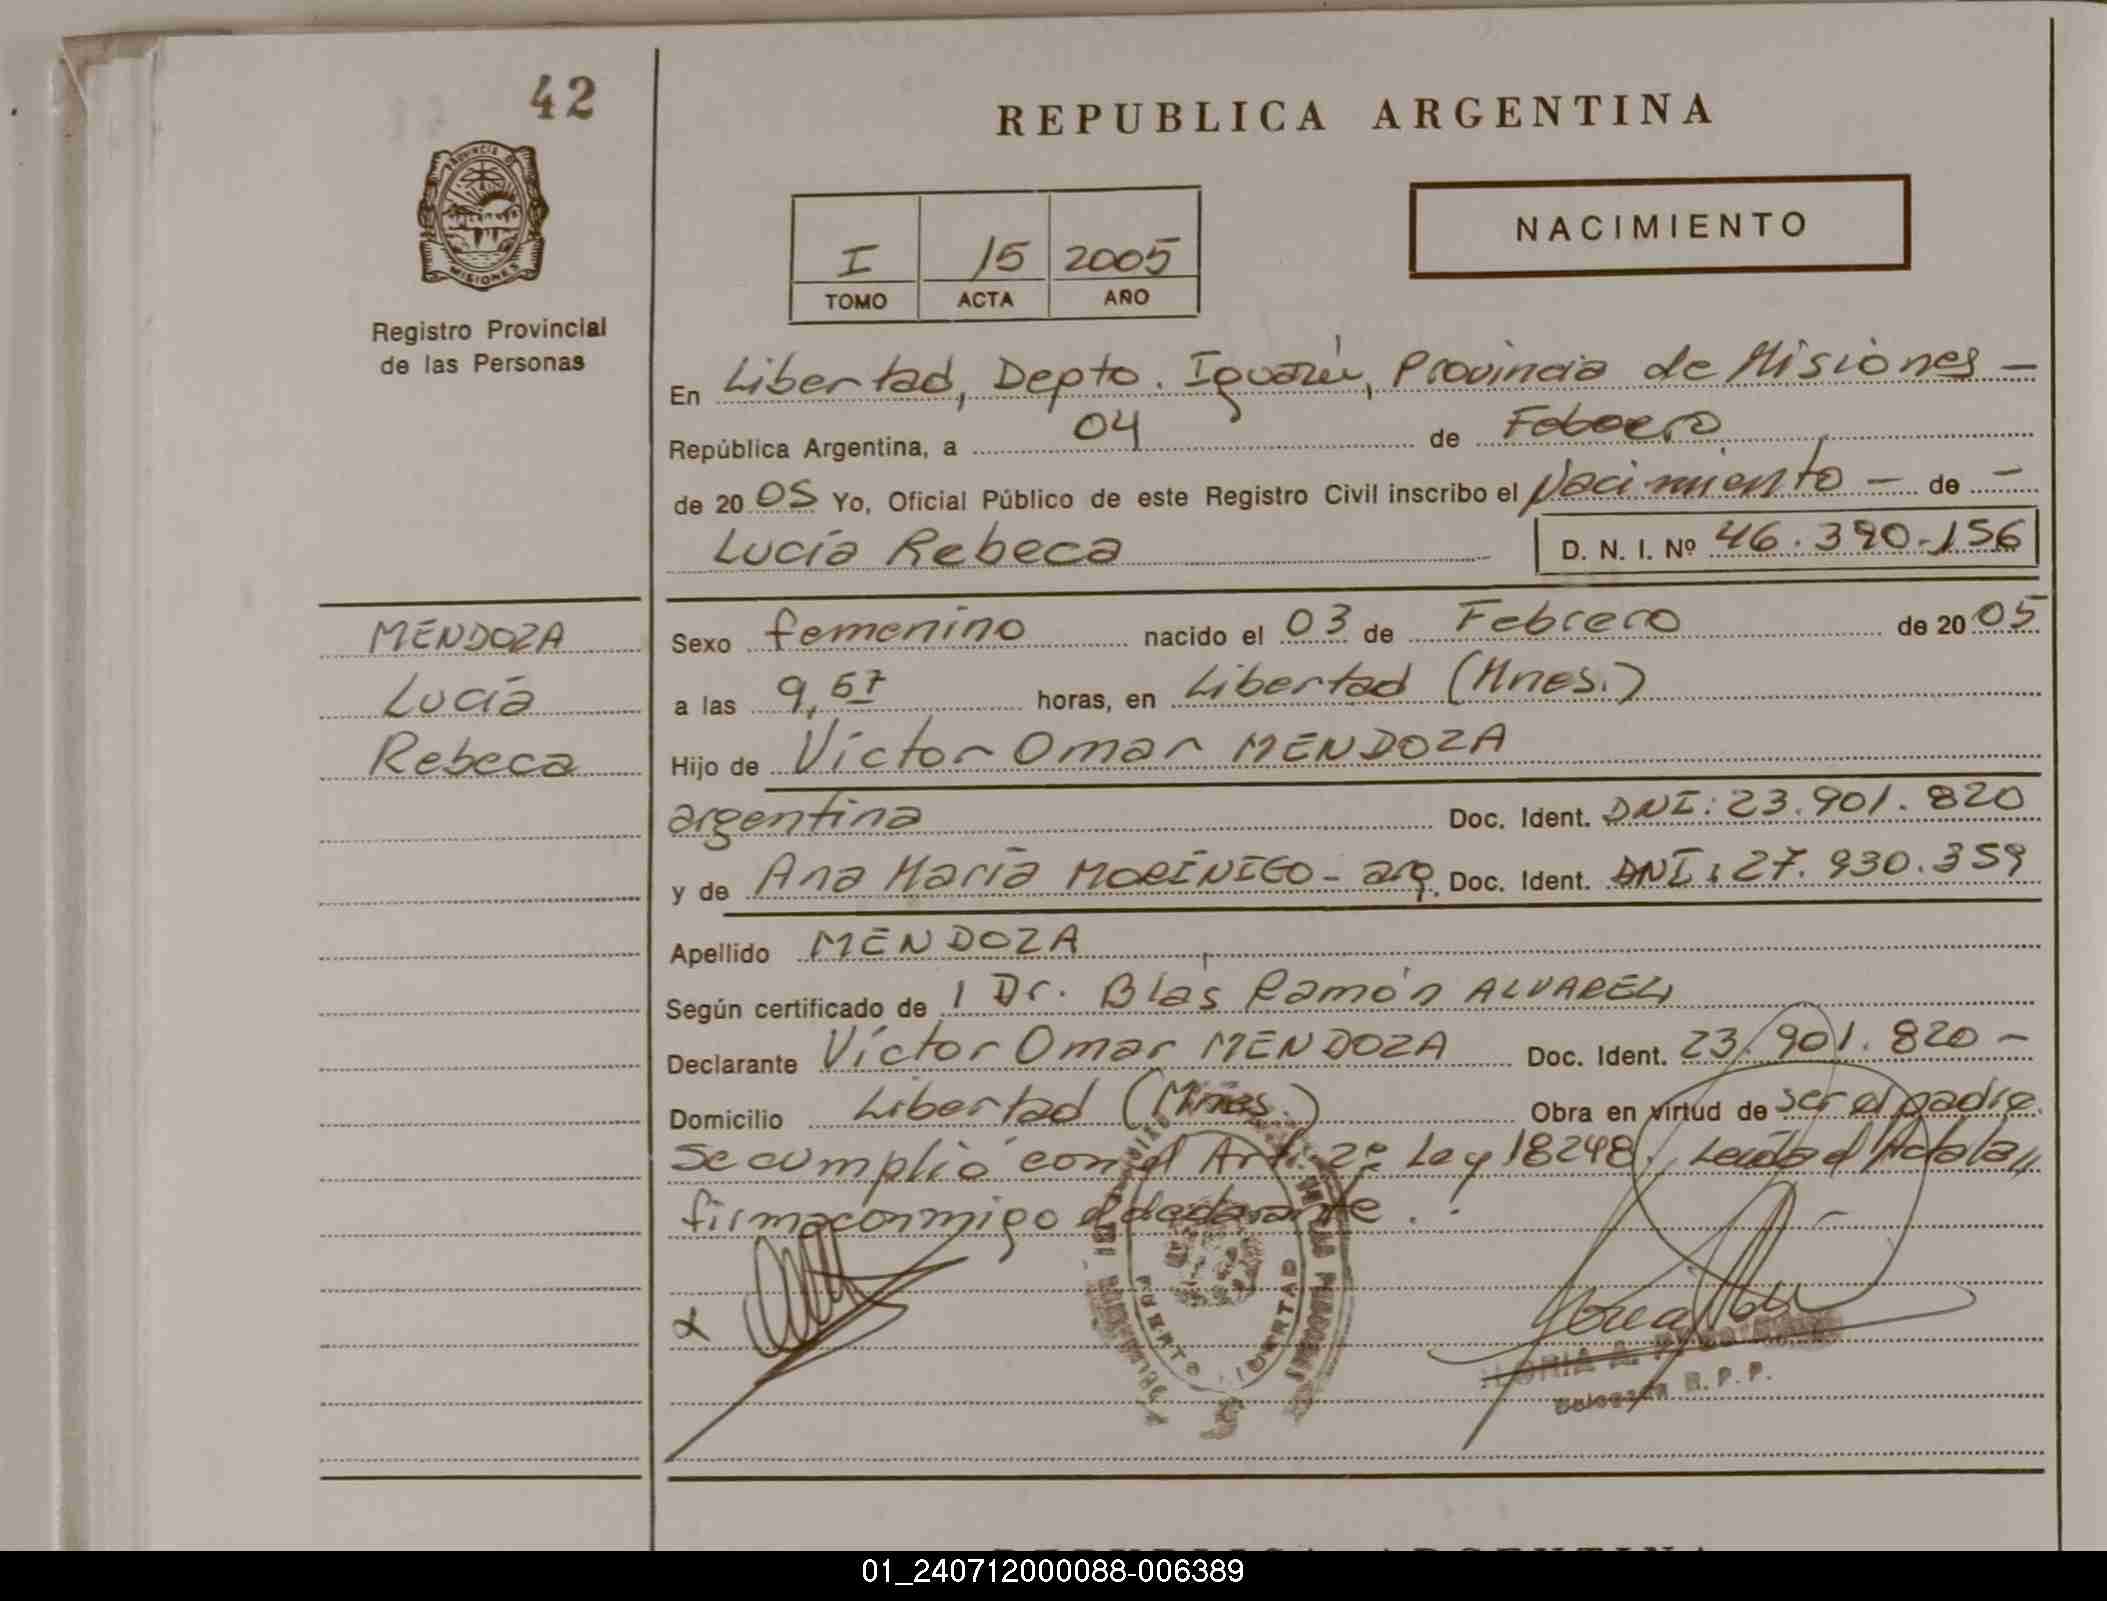 42
REPUBLICA ARGENTINA
PROVINCIA D
MISIONES
NACIMIENTO
I 15 2005
TOMO ACTA AÑO
Registro Provincial
de las Personas
En Libertad, Depto. Iguazú, Provincia de Misiones -
República Argentina, a 04 de Febrero
de 2005 Yo, Oficial Público de este Registro Civil inscribo el Nacimiento - de -
Lucía Rebeca D. N. I. Nº 46.390.156
MENDOZA
Lucía
Rebeca
Sexo femenino nacido el 03 de Febrero de 2005
a las 9,57 horas, en Libertad (Mnes.)
Hijo de Víctor Omar MENDOZA
argentina Doc. Ident. DNI: 23.901.820
y de Ana María MORÍNIGO - arg. Doc. Ident. DNI: 27.930.359
Apellido MENDOZA
Según certificado de Dr. Blas Ramón
Declarante Víctor Omar MENDOZA Doc. Ident. 23.901.820 -
Domicilio Libertad (Mnes.) Obra en virtud de ser el padre.
Se cumplió con el Art. 2º Ley 18248. Leída el Acta la
firma conmigo el declarante.
PUERTO LIBERTAD
R. P. P.
01_240712000088-006389